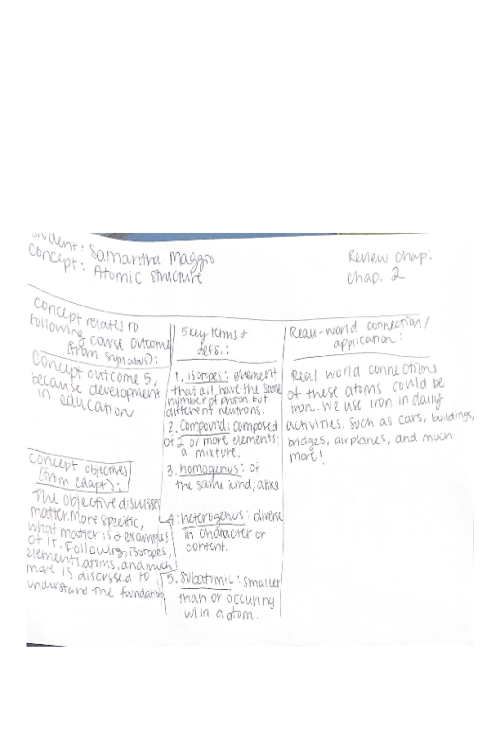 Student: Samantha Maggio
Concept: Atomic structure
Review Chap:
Chap. 2
Concept relates to
following course outcome
(from syllabus):
Concept outcome 5,
because development
in education
Concept objectives
(from edapt):
The objective discusses
matter. More specific,
what matter is & examples
of it. Following, isotopes,
elements, atoms, and much
more is discussed to
understand the foundation
5 key terms &
defs.:
1. isotopes: element
that all have the same
number of proton but
different neutrons.
2. Compound: composed
of 2 or more elements;
a mixture.
3. homogenus: of
the same kind; alike
4. heterogenus: diverse
in character or
content.
5. Subatomic: smaller
than or occuring
w/in a atom.
Real-world connection/
application:
Real world connections
of these atoms could be
iron. We use iron in daily
activities. Such as cars, buildings,
bridges, airplanes, and much
more!